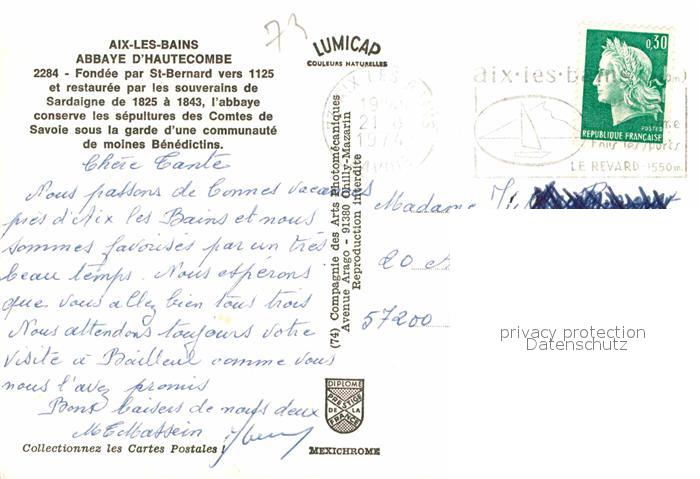 73
AIX-LES-BAINS
ABBAYE D'HAUTECOMBE
2284 - Fondée par St-Bernard vers 1125
et restaurée par les souverains de
Sardaigne de 1825 à 1843, l'abbaye
conserve les sépultures des Comtes de
Savoie sous la garde d'une communauté
de moines Bénédictins.
LUMICAP
COULEURS NATURELLES
Chère Tante
Nous passons de bonnes vacances
près d'Aix les Bains et nous
sommes favorisés par un très
beau temps. Nous espérons
que vous allez bien tous trois
Nous attendons toujours votre
visite à Bailleul comme vous
nous l'avez promis
Bons baisers de nous deux
Collectionnez les Cartes Postales !
(74) Compagnie des Arts Photomécaniques
Avenue Arago - 91380 Chilly-Mazarin
Reproduction interdite
DIPLOME
PRESTIGE
DE LA
FRANCE
MEXICHROME
AIX LES
19
21
aix-les-bains
LE REVARD-1550m
0,30
POSTES
REPUBLIQUE FRANÇAISE
Madame
20
57200
privacy protection
Datenschutz